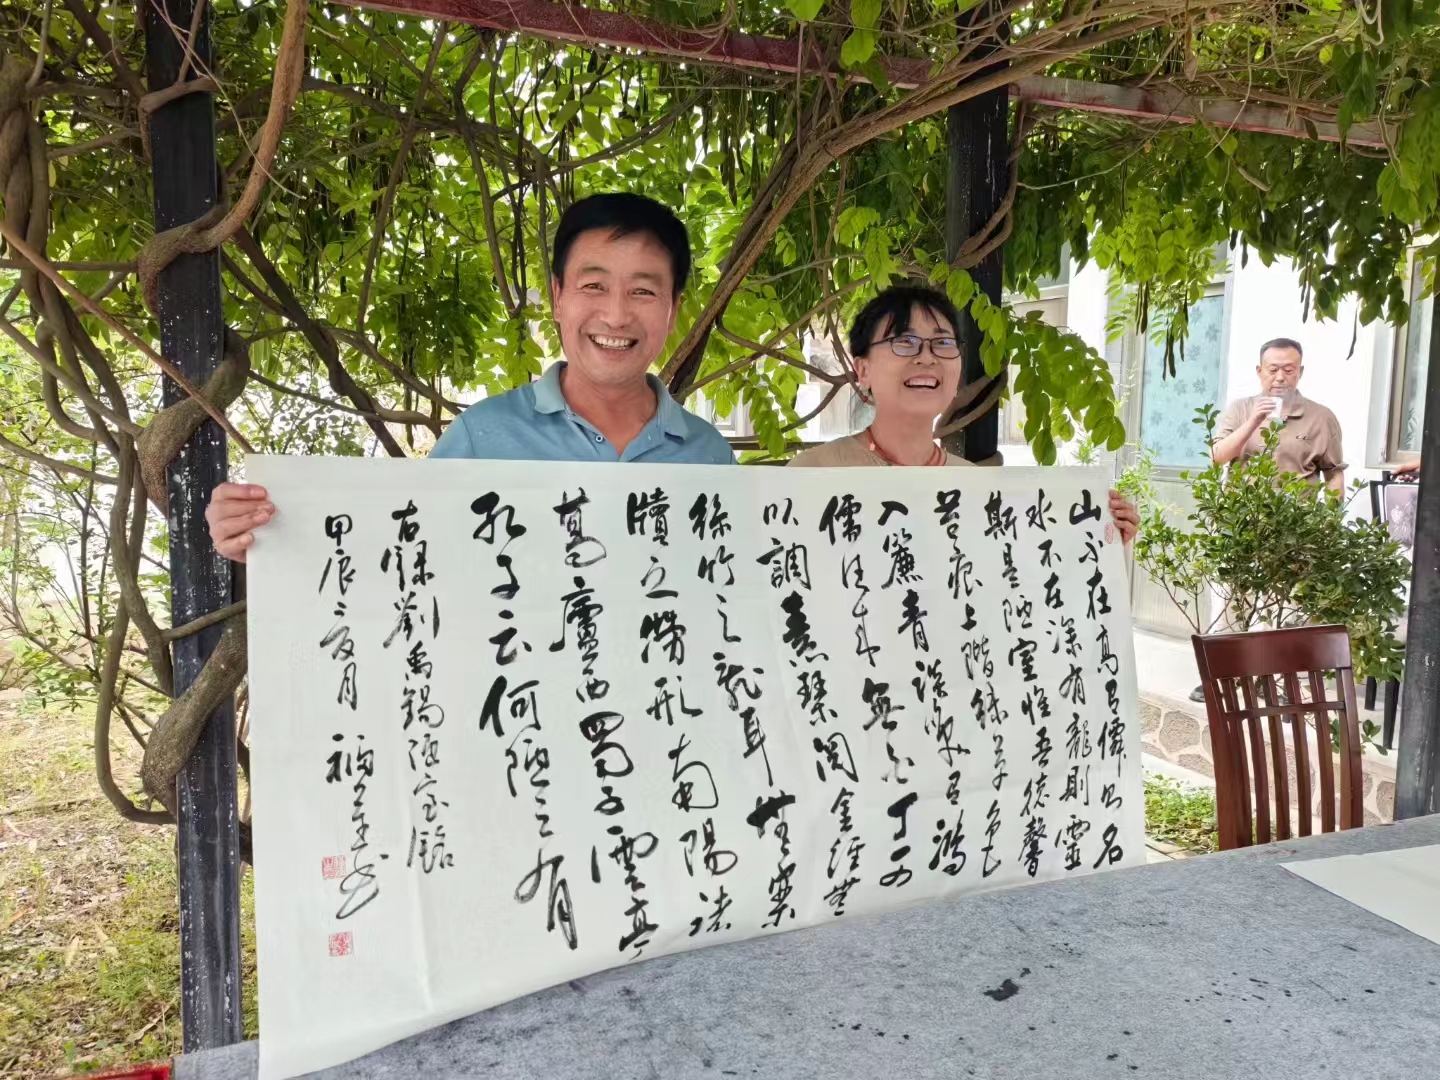 山不在高有僊則名
水不在深有龍則靈
斯是陋室惟吾德馨
苔痕上階綠草色
入簾青談笑有鴻
儒往來無白丁可
以調素琴閱金經無
絲竹之亂耳無案
牘之勞形南陽諸
葛廬西蜀子雲亭
孔子云何陋之有
右錄劉禹錫陋室銘
甲辰夏月